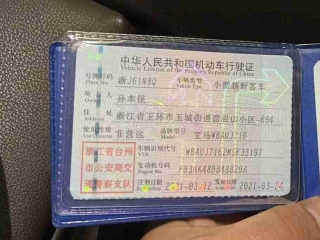 中华人民共和国机动车行驶证
Vehicle License of the People's Republic of China
号牌号码 浙J61N8Q 车辆类型 小型越野客车
Plate No. Vehicle Type
所有人 孙本保
Owner
住址 浙江省玉环市玉城街道
Address
使用性质 非营运 品牌型号 宝马WBAUJ710
浙江省台州
市公安局交
通警察支队
车辆识别代号
VIN
发动机号码
Engine No.
注册日期 2021-03-12 发证日期 2021-03-24